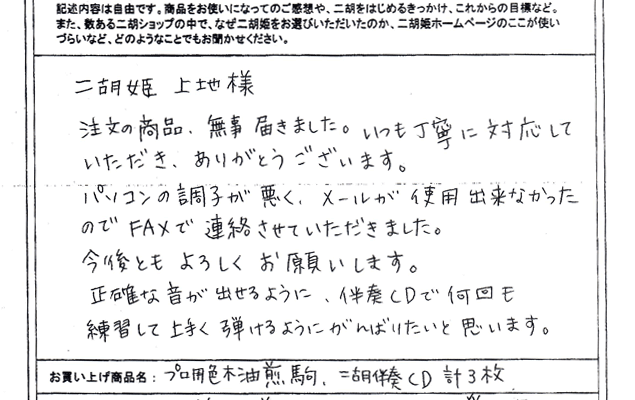 記述内容は自由です。商品をお使いになってのご感想や、二胡をはじめるきっかけ、これからの目標など。
また、数ある二胡ショップの中で、なぜ二胡姫をお選びいただいたのか、二胡姫ホームページのここが使い
づらいなど、どのようなことでもお聞かせください。
二胡姫 上地様
注文の商品、無事届きました。いつも丁寧に対応して
いただき、ありがとうございます。
パソコンの調子が悪く、メールが使用出来なかった
のでFAXで連絡させていただきました。
今後ともよろしくお願いします。
正確な音が出せるように、伴奏CDで何回も
練習して上手く弾けるようにがんばりたいと思います。
お買い上げ商品名：プロ用色木油煎駒、二胡伴奏CD 計3枚